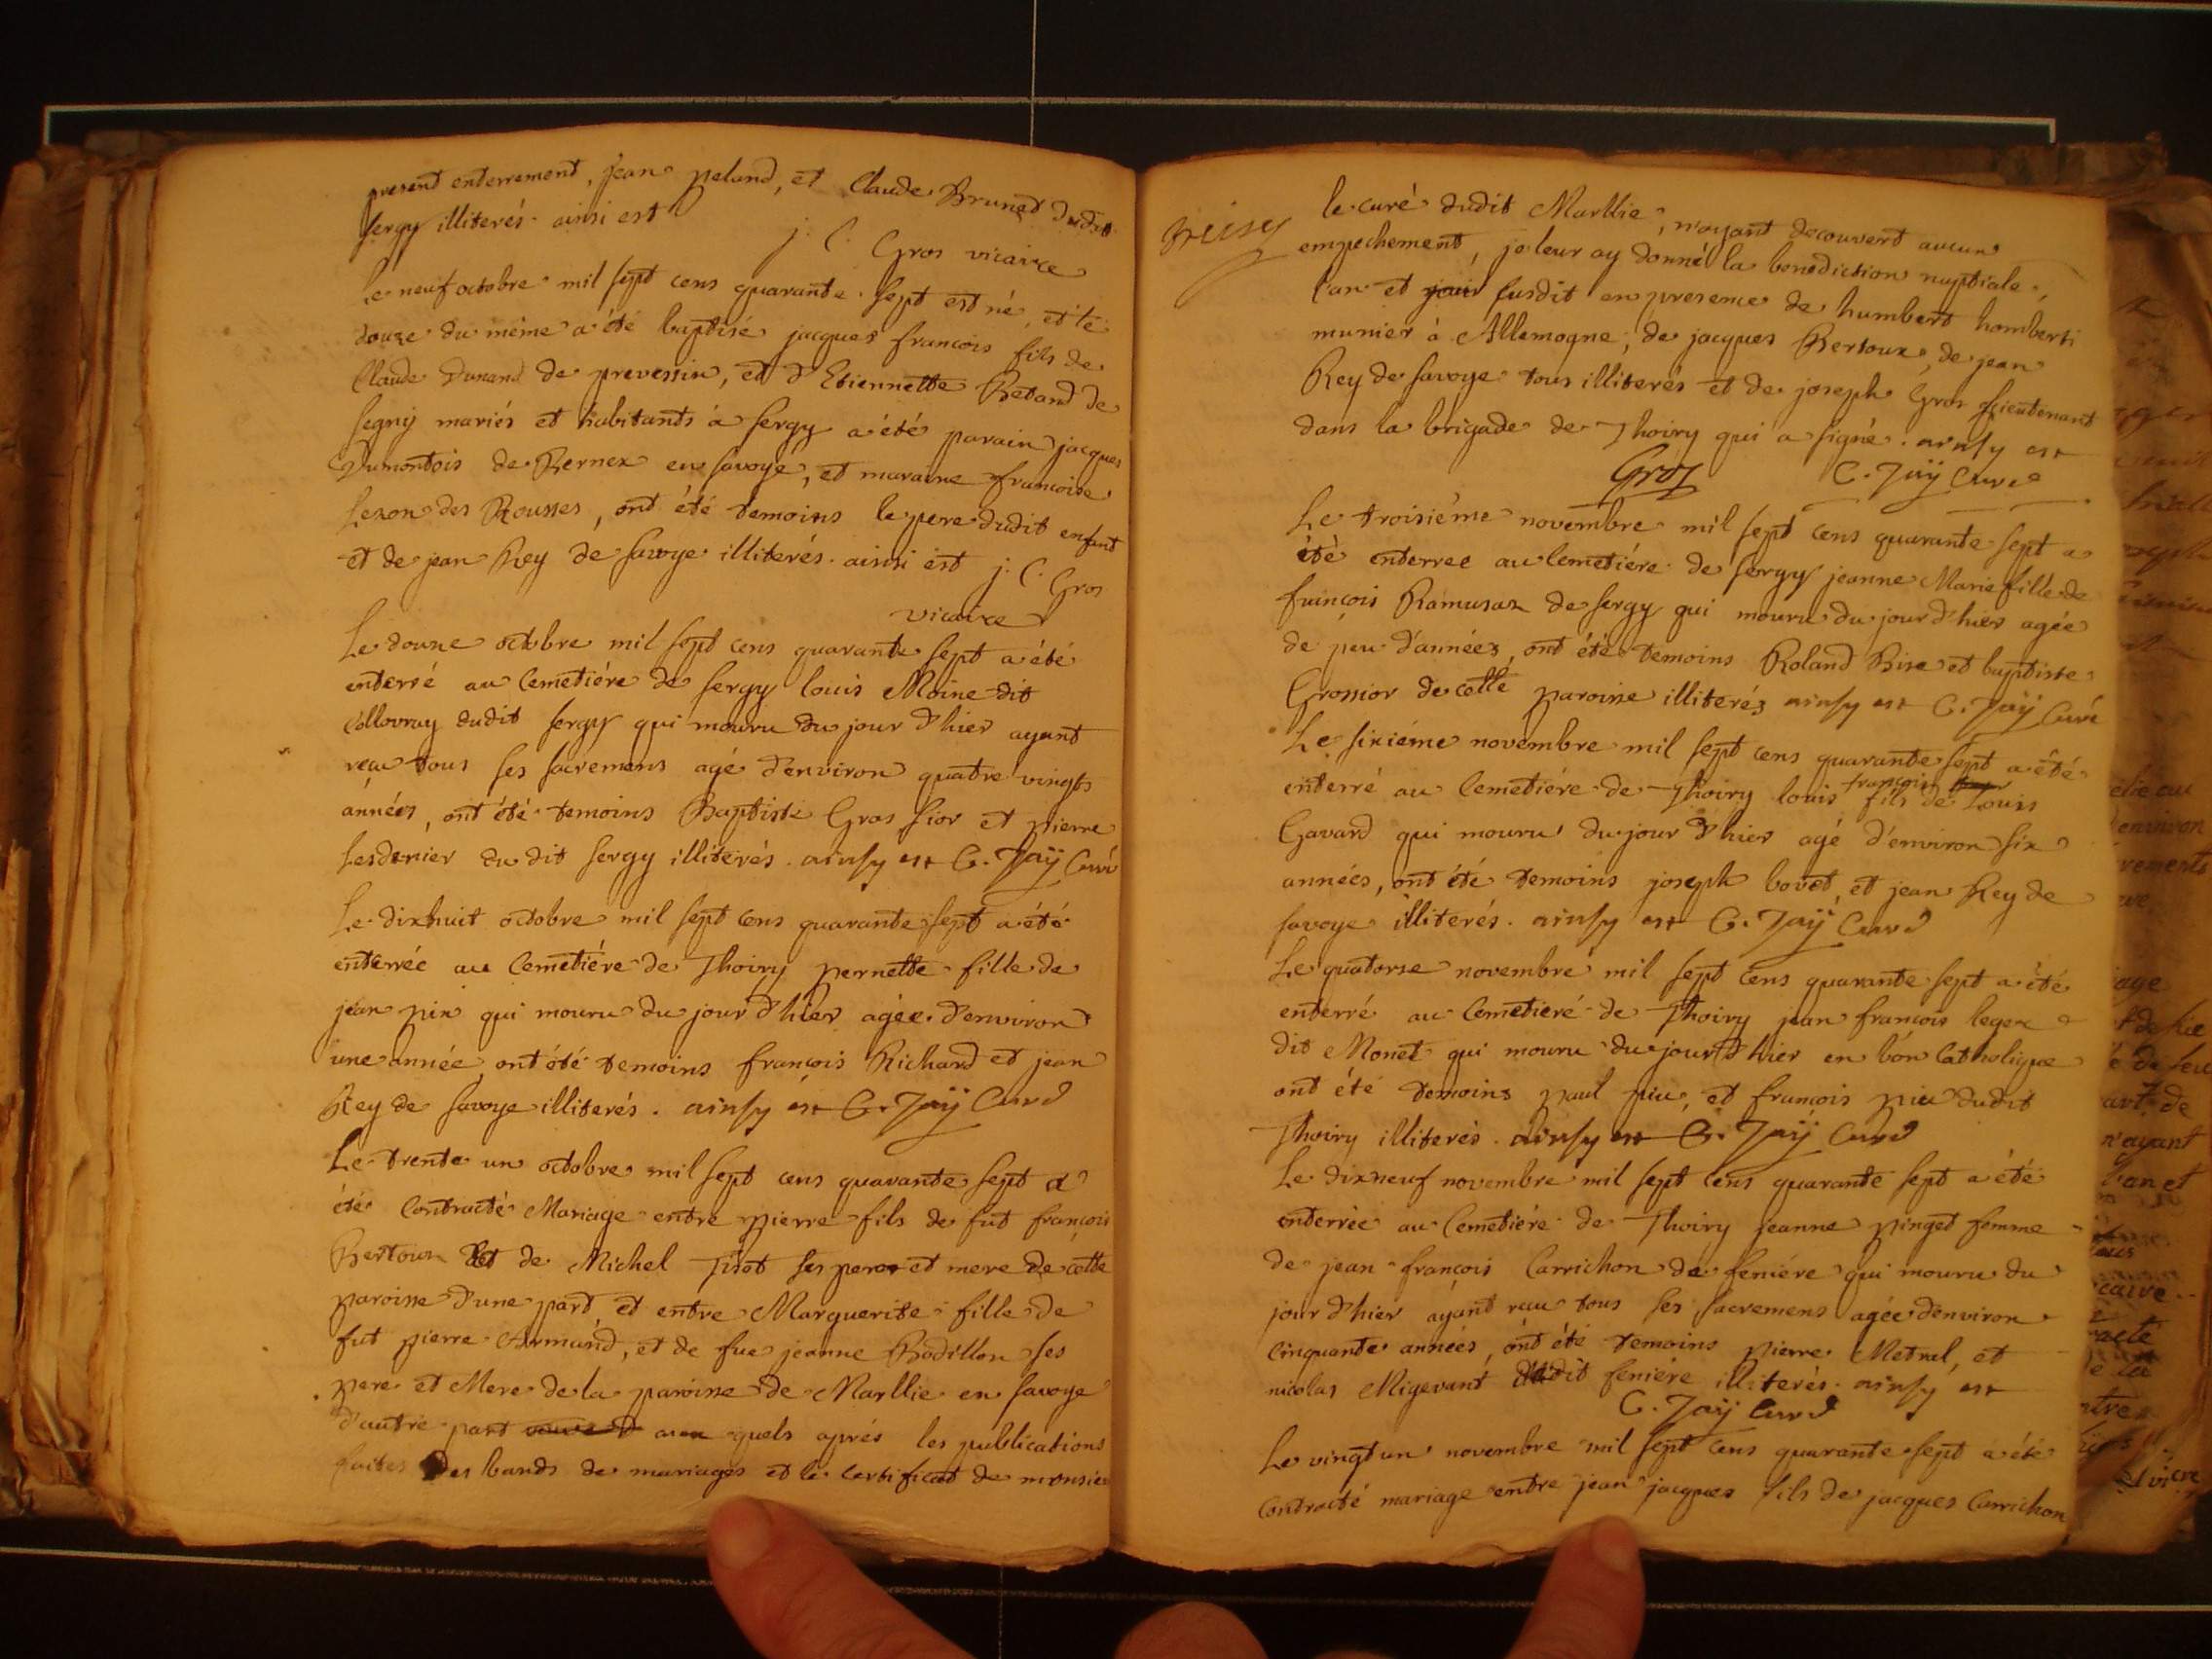 present enterrement, jean peland, et Claude Brunet dudit
sergy illiterés. ainsi est
j. C. Gros vicaire
Le neuf octobre mil sept cens quarante sept est né, et le
douze du méme a été baptisé jacques francois fils de
Claude Dunand de prevessin, et d'Etiennette Betand de
segny mariés et habitants à sergy a été parain jacques
Dumontois de Bernex en savoye, et maraine francoise
Lezon des Rousses, ont été temoins le pere dudit enfant
et de jean Rey de savoye illiterés. ainsi est j. C. Gros
vicaire
Le douze octobre mil sept cens quarante sept a été
enterré au Cemetiére de sergy louis Moine dit
Collovray dudit sergy qui mouru du jour d'hier ayant
reçu tous ses sacremens agé d'environ quatre vingts
années, ont été temoins Baptiste Gros sior et pierre
Lesdernier du dit sergy illiterés. ainsy est C. Jaÿ Curé
Le dixhuit octobre mil sept cens quarante sept a été
enterrée au Cemetiére de Thoiry pernette fille de
jean pin qui mouru du jour d'hier agée d'environ
une année, ont été temoins françois Richard et jean
Rey de savoye illiterés. ainsy est C. Jaÿ Curé
Le trente un octobre mil sept cens quarante sept a
été Contracté Mariage entre pierre fils de fut françois
Bertoux et de Michel Tisot ses pere et mere de cette
paroisse d'une part, et entre Marguerite fille de
fut pierre Armand, et de fue jeanne Bodillon ses
pere et Mere de la paroisse de Marllie en savoye
d'autre part aux quels aprés les publications
faites des bands de mariages et le Certificat de monsieu
le curé dudit Marllie, n'ayant decouvert aucun
empechement, je leur ay donné la benediction nuptiale,
l'an et jour susdit en presence de humbert homberti
munier à Allemogne, de jacques Bertoux, de jean
Rey de savoye tous illiterés et de joseph Gros lieutenant
dans la brigade de Thoiry qui a signé. ainsy est
Gros C. Jaÿ Curé
Le troisiéme novembre mil sept cens quarante sept a
été enterree au Cemetiére de sergy jeanne Marie fille de
françois Ramusaz de sergy qui mouru du jour d'hier agée
de peu d'années, ont été temoins Roland Bise et baptiste
Grossior de cette paroisse illiterés ainsy est C. Jaÿ Curé
Le sixiéme novembre mil sept cens quarante sept a été
enterré au Cemetiére de Thoiry louis françois fils de Louis
Gavard qui mouru du jour d'hier agé d'environ six
années, ont été temoins joseph bovet, et jean Rey de
savoye illiterés. ainsy est C. Jaÿ Curé
Le quatorse novembre mil sept cens quarante sept a été
enterré au Cemetiére de Thoiry jean francois leger
dit Monet qui mouru du jour d'hier en bon Catholique
ont été temoins paul piu, et francois piu dudit
Thoiry illiterés. ainsy est C. Jaÿ Curé
Le dixneuf novembre mil sept cens quarante sept a été
enterrée au Cemetiére de Thoiry jeanne pinget femme
de jean françois Carrichon de feniére qui mouru du
jour d'hier ayant reçu tous ses sacremens agée d'environ
Cinquante années, ont été temoins pierre Metral, et
nicolas Migevant dudit feniére illiterés. ainsy est
C. Jaÿ Curé
Le vingt un novembre mil sept cens quarante sept a été
Contracté mariage entre jean jacques fils de jacques Carrichon